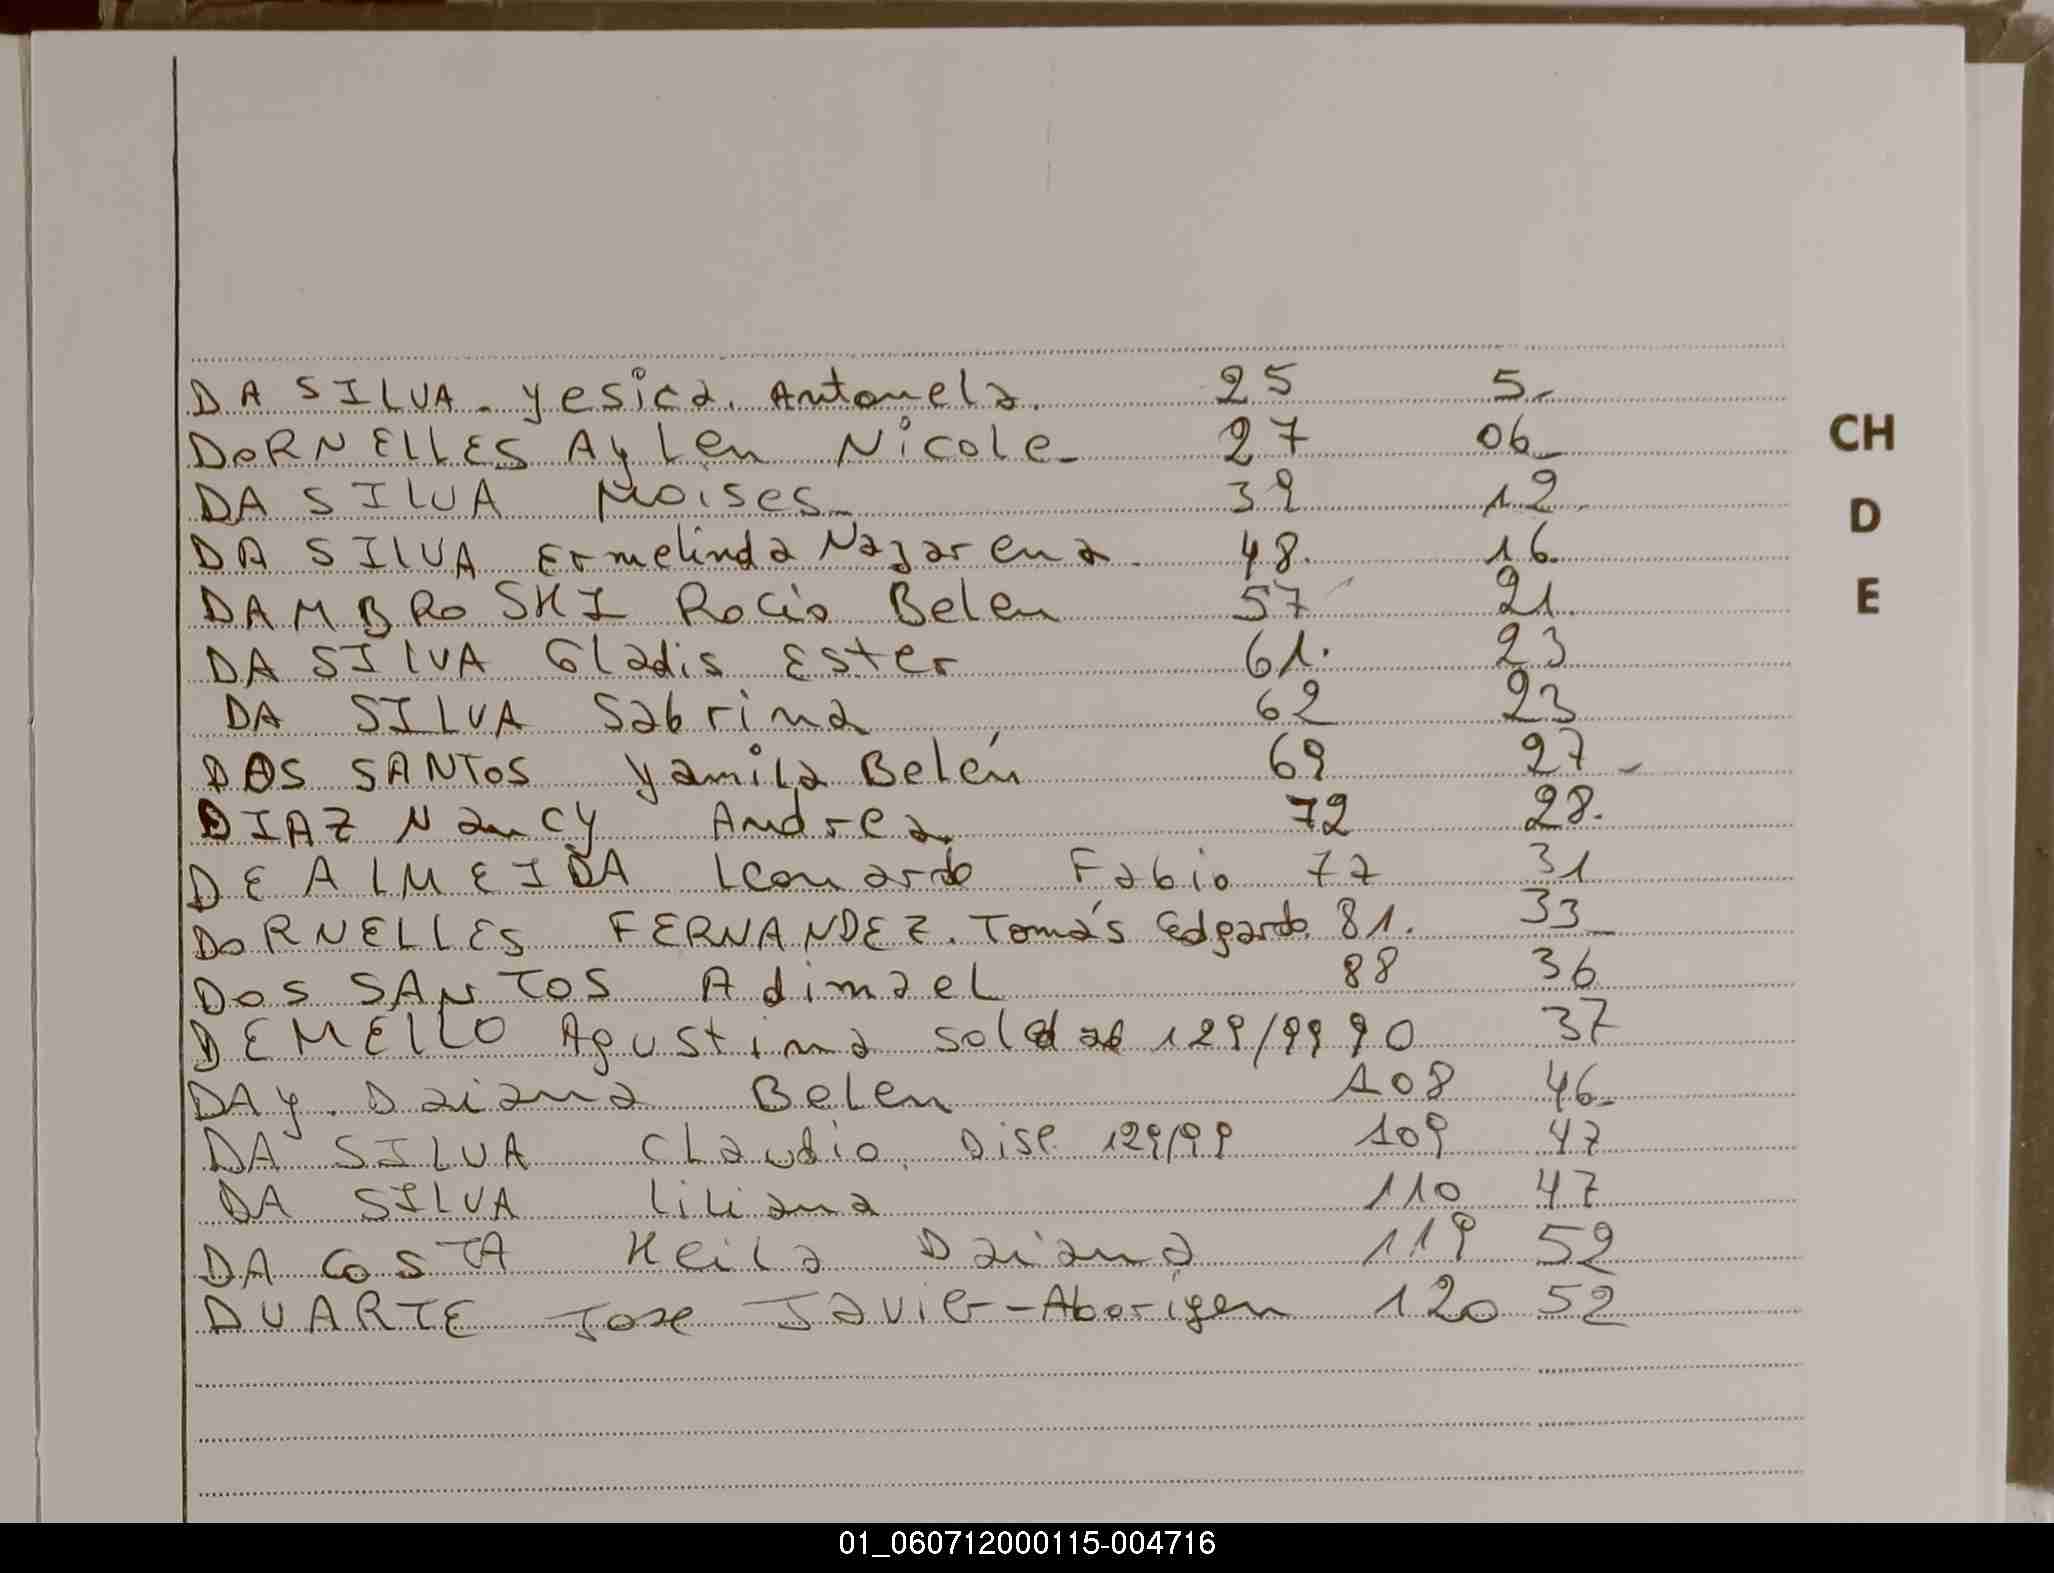 DA SILVA - Yesica. Antonela. 25 5.-
DORNELLES Aylen Nicole - 27 06_
DA SILVA Moises_ 39 12
DA SILVA Ermelinda Nazarena 48. 16.
DAMBROSKI Rocio Belen 57 21.
DA SILVA Gladis Ester 61. 23
DA SILVA Sabrina 62 23
DOS SANTOS Yamila Belén 69 27 -
DIAZ Nancy Andrea 72 28.
DE ALMEIDA Leonardo Fabio 77 31
DORNELLES FERNANDEZ. Tomás Edgardo. 81. 33_
DOS SANTOS Adimael 88 36
DEMELLO Agustina soledad 129/99 90 37
DAY. Daiana Belen 108 46_
DA SILVA Claudio. Disp 129/99 109 47
DA SILVA Liliana 110 47
DA COSTA Keila Daiana 119 52
DUARTE Jose Javier - Aborigen 120 52
CH
D
E
01_060712000115-004716